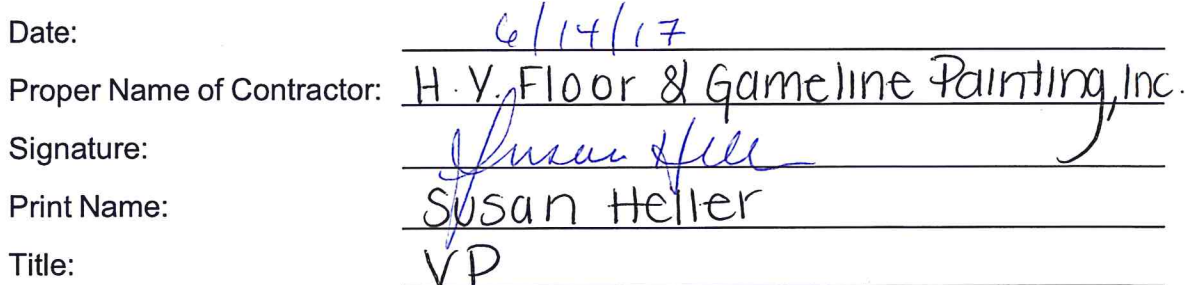 Date: 6/14/17
Proper Name of Contractor: H.Y. Floor & Gameline Painting, Inc.
Signature: Susan Hell
Print Name: Susan Heller
Title: VP